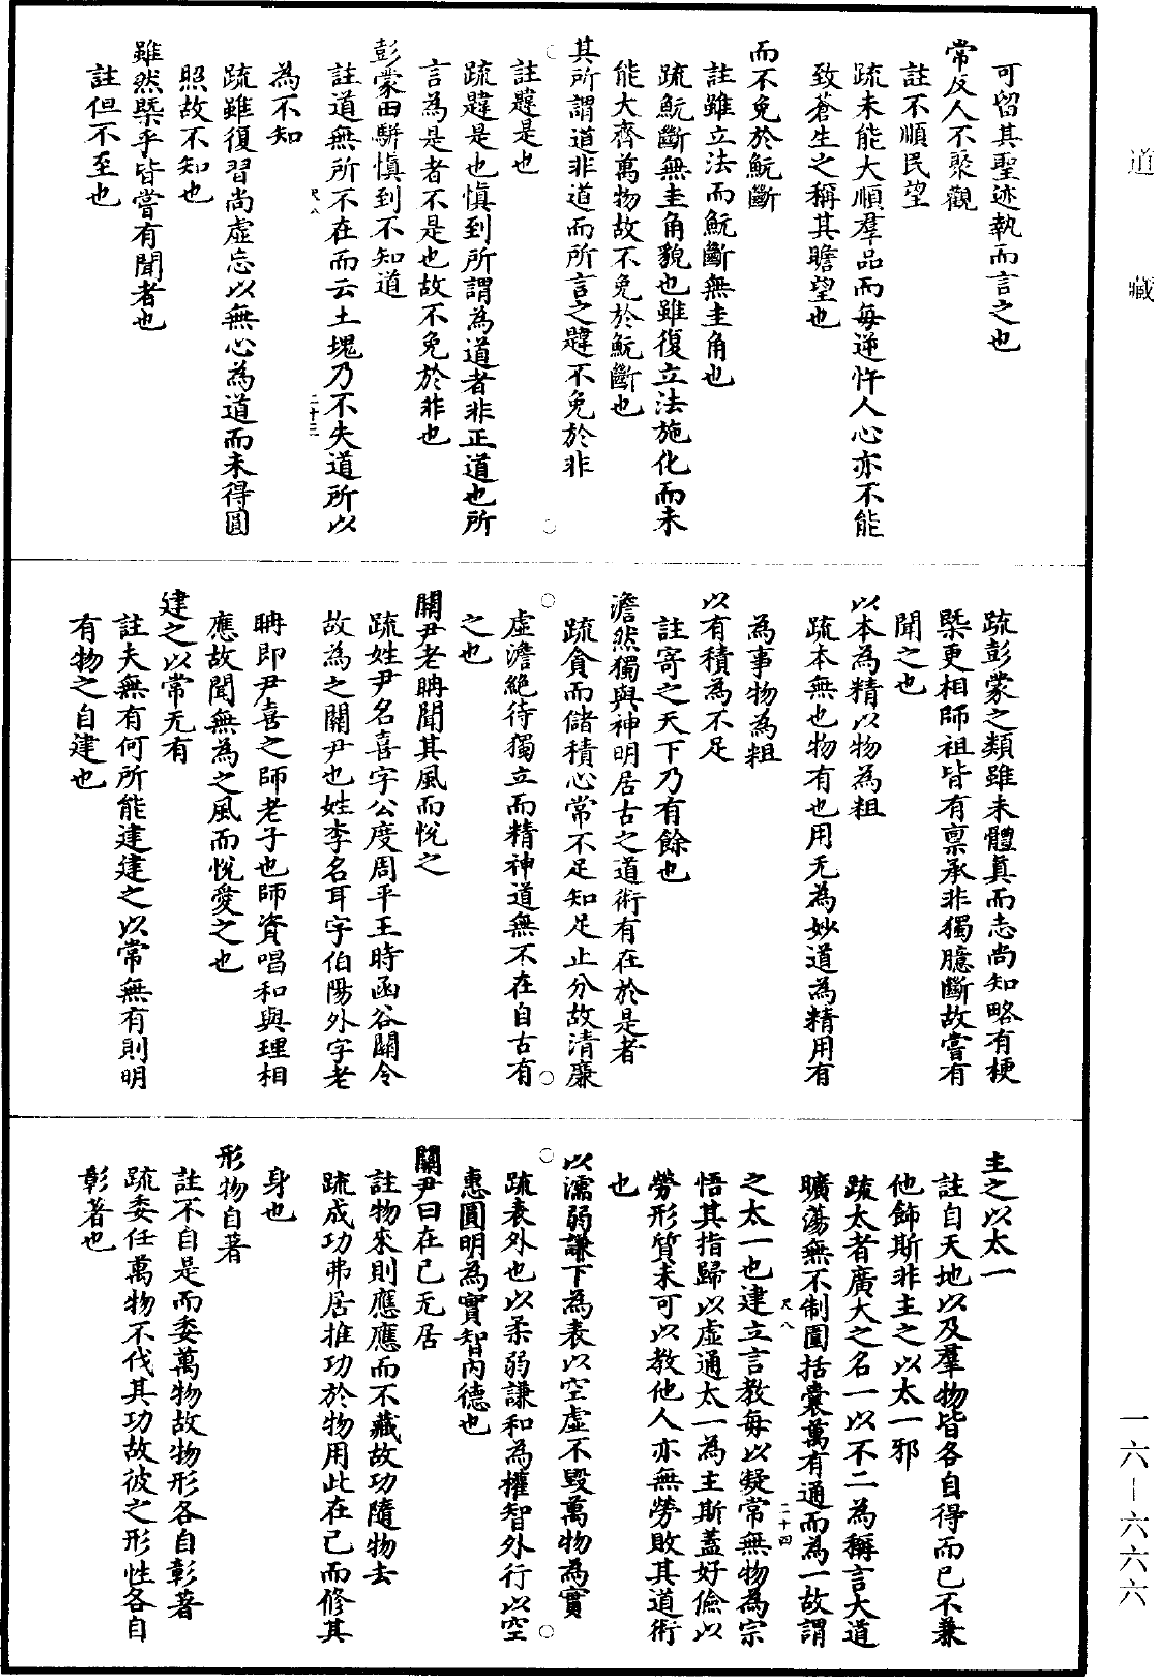 道藏
可留其聖迹執而言之也
常反人不聚觀
註不順民望
疏未能大順羣品而每逆忤人心亦不能
致蒼生之稱其瞻望也
而不免於魭斷
註雖立法而魭斷無圭角也
疏魭斷無圭角貌也雖復立法施化而未
能大齊萬物故不免於魭斷也
其所謂道非道而所言之韙不免於非
註韙是也
疏韙是也慎到所謂為道者非正道也所
言為是者不是也故不免於非也
彭蒙田駢慎到不知道
註道無所不在而云土塊乃不失道所以
為不知
尺八
二十三
疏雖復習尚虛忘以無心為道而未得圓
照故不知也
雖然槩乎皆嘗有聞者也
註但不至也
疏彭蒙之類雖未體真而志尚知略有梗
槩更相師祖皆有禀承非獨臆斷故嘗有
聞之也
以本為精以物為粗
疏本無也物有也用无為妙道為精用有
為事物為粗
以有積為不足
註寄之天下乃有餘也
澹然獨與神明居古之道術有在於是者
疏貪而儲積心常不足知足止分故清廉
虛澹絕待獨立而精神道無不在自古有
之也
關尹老聃聞其風而悅之
疏姓尹名喜字公度周平王時函谷關令
故為之關尹也姓李名耳字伯陽外字老
聃即尹喜之師老子也師資唱和與理相
應故聞無為之風而悅愛之也
建之以常无有
註夫無有何所能建建之以常無有則明
有物之自建也
主之以太一
註自天地以及羣物皆各自得而已不兼
他飾斯非主之以太一邪
疏太者廣大之名一以不二為稱言大道
曠蕩無不制圍括囊萬有通而為一故謂
之太一也建立言教每以凝常無物為宗
尺八
二十四
悟其指歸以虛通太一為主斯蓋好儉以
勞形質未可以教他人亦無勞敗其道術
也
以濡弱謙下為表以空虛不毀萬物為實
疏表外也以柔弱謙和為權智外行以空
惠圓明為實智內德也
關尹曰在已无居
註物來則應應而不藏故功隨物去
疏成功弗居推功於物用此在已而修其
身也
形物自著
註不自是而委萬物故物形各自彰著
疏委任萬物不伐其功故彼之形性各自
彰著也
一六—六六六